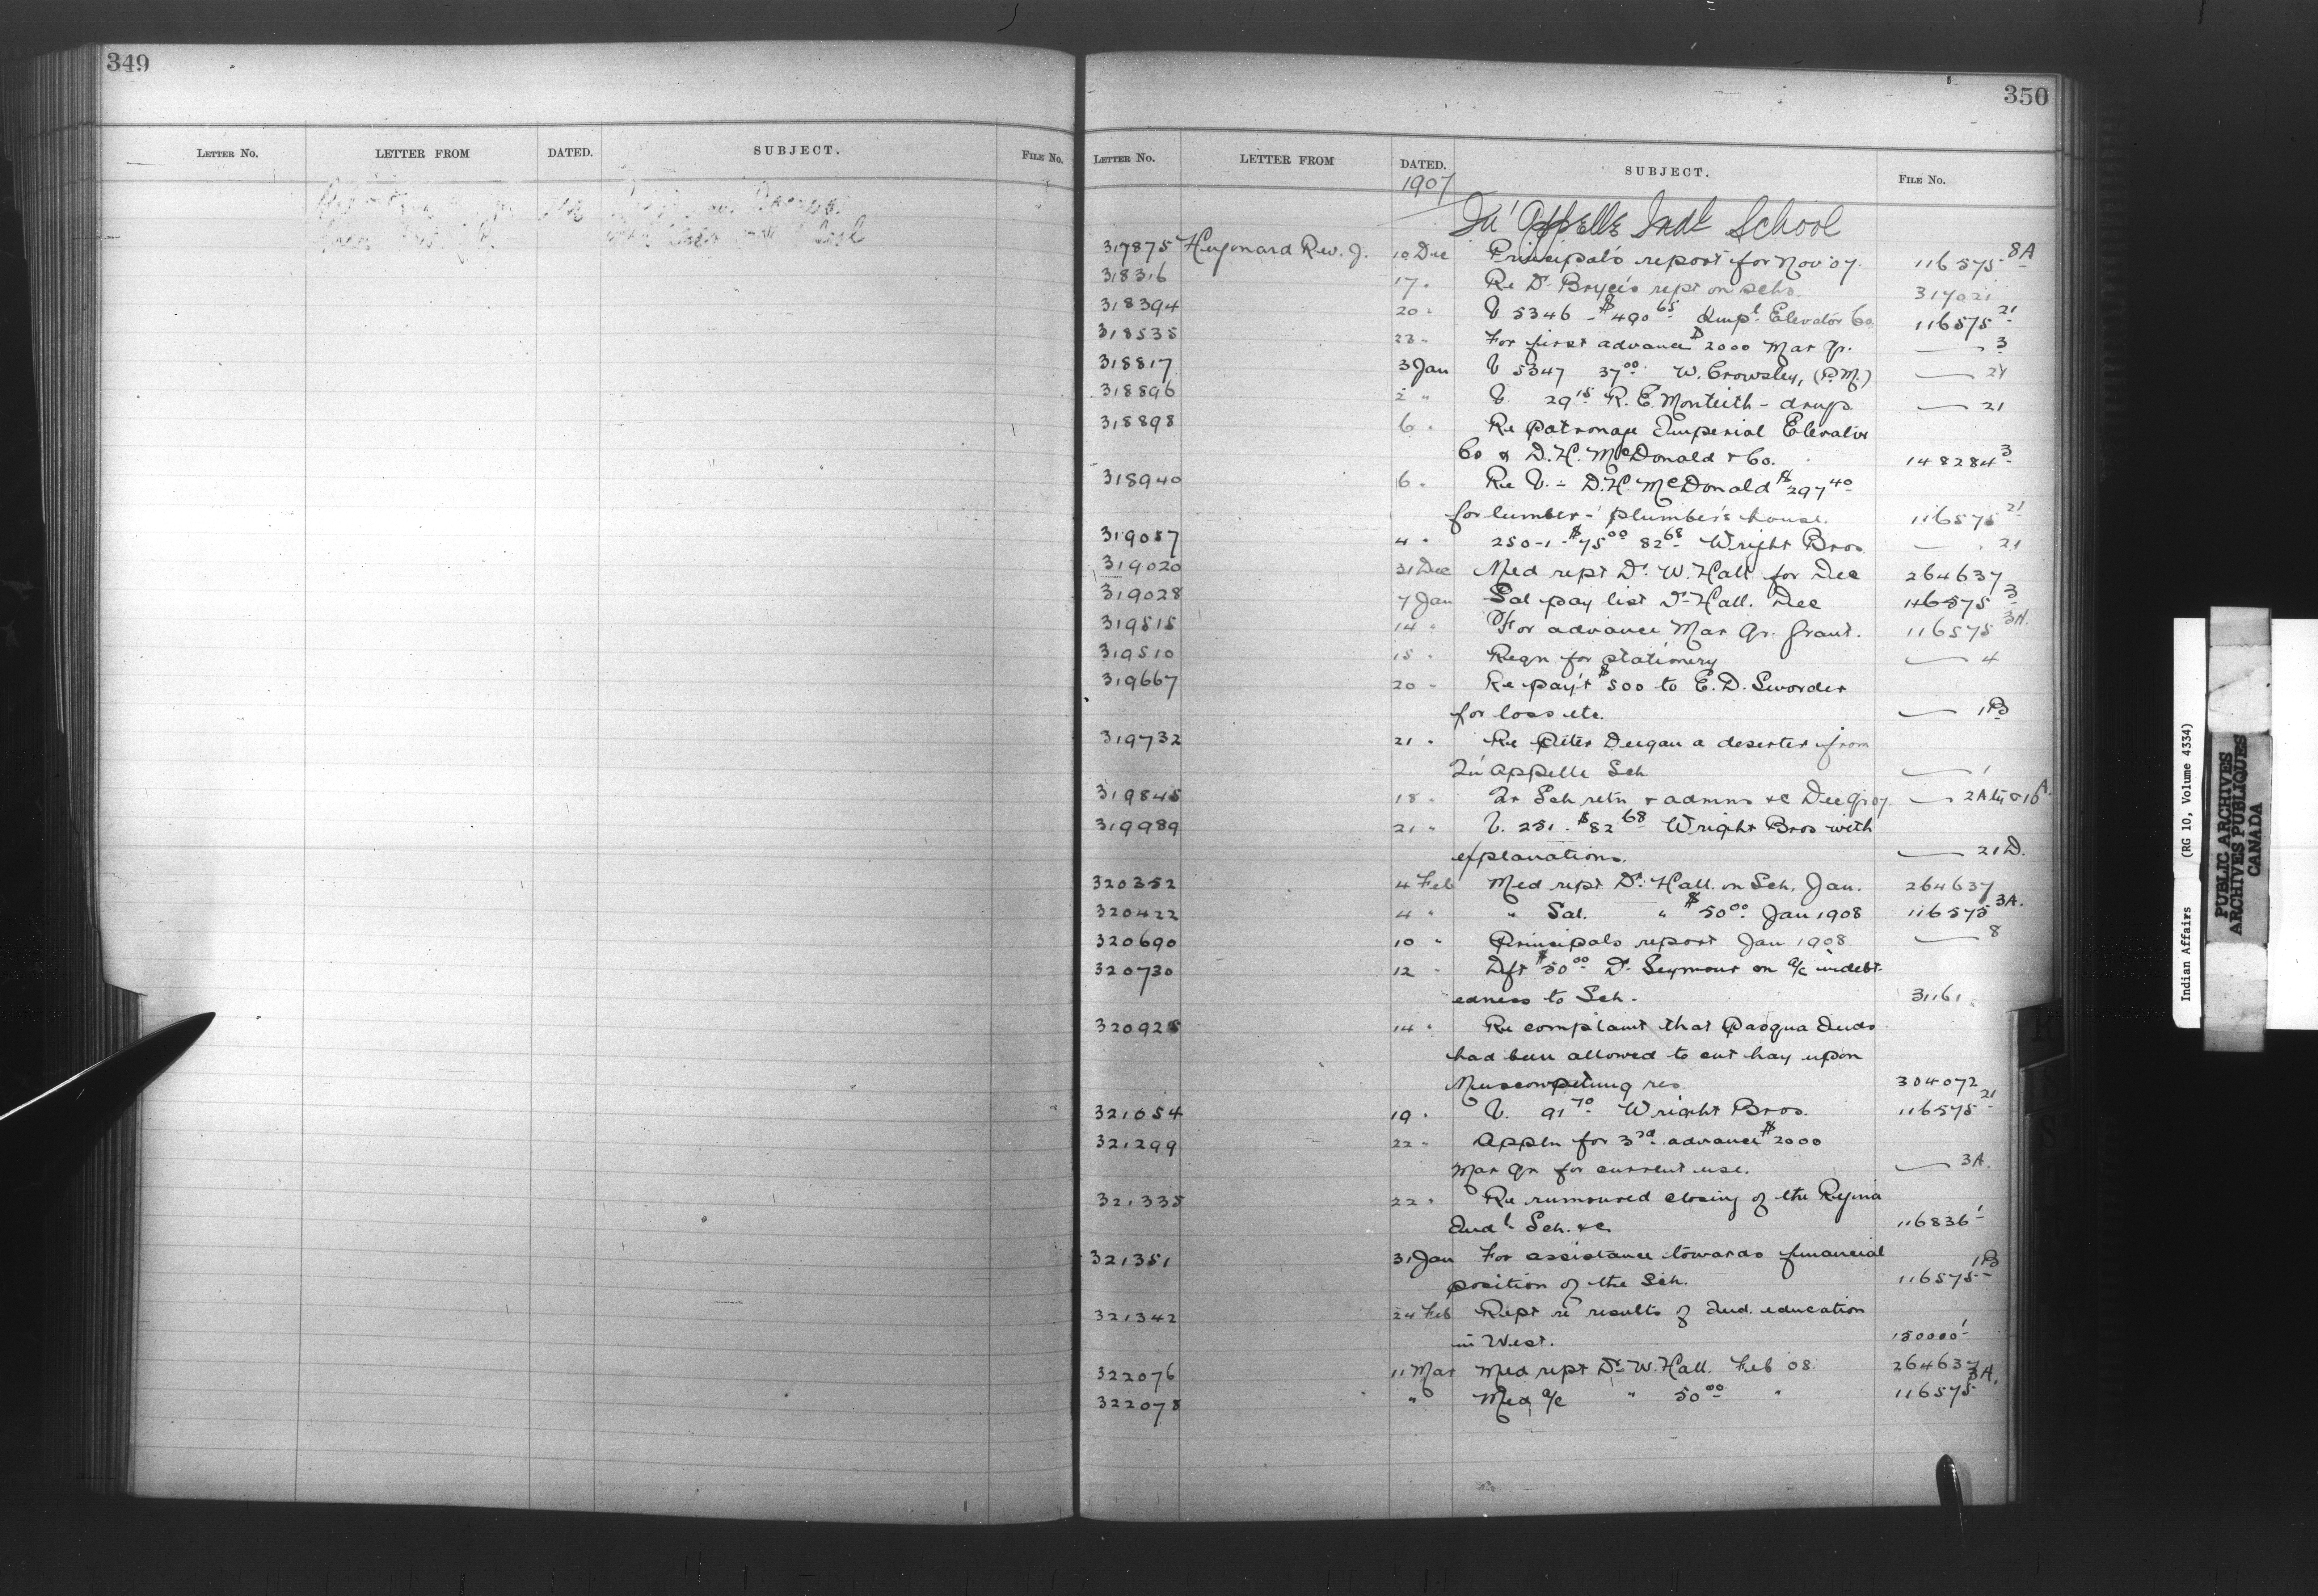 349
LETTER No. LETTER FROM DATED. SUBJECT. FILE No.
350
LETTER No. LETTER FROM DATED. SUBJECT. FILE No.
1907
Qu'Appelle Indl School
317875 Hugonard Rev. J. 10 Dec Principal's report for Nov 07. 116575 8A
318316 17 " Re Dr Bryce's rept on schs. 317021
318394 20 " V 5346 - $490 65 Impl Elevator Co. 116575 21
318535 23 " For first advance $2000 Mar Qr. — 3
318817 3 Jan V 5347 37 00 W. Crowsley, (P.M.) — 21
318896 2 " V. 29 15 R. E. Monteith - drugs — 21
318898 6 " Re Patronage Imperial Elevator
Co & D. H. McDonald & Co. 148284 3
318940 6 " Re V. - D. H. McDonald $297 40
for lumber - plumber's house. 116575 21
319057 4 " 250-1 - $75 00 82 68 Wright Bros — 21
319020 31 Dec Med rept Dr. W. Hall for Dec 264637
319028 7 Jan Sal pay list Dr Hall. Dec 116575 3
319515 14 " For advance Mar Qr. grant. 116575 3A.
319510 15 " Reqn for stationery — 4
319667 20 " Re pay't $500 to E. D. Sworder
for loss etc. — 1B
319732 21 " Re Peter Deegan a deserter from
Qu'Appelle Sch — 1
319845 18 " Qr Sch retn & admns &c Dec Qr 07 — 2A &16A.
319989 21 " V. 251. $82 68 Wright Bros with
explanations. — 21D.
320352 4 Feb Med rept Dr. Hall. on Sch. Jan. 264637
320422 4 " " Sal. " $50 00 Jan 1908 116575 3A.
320690 10 " Principals report Jan 1908 — 8
320730 12 " Dft $50 00 Dr. Seymour on a/c indebt-
edness to Sch. 31161
320925 14 " Re complaint that Pasqua Inds
had been allowed to cut hay upon
Muscowpetung res 304072
321054 19 " V. 91 70 Wright Bros. 116575 21
321299 22 " Appln for 3rd advance $2000
Mar Qr for current use. — 3A.
321335 22 " Re rumoured closing of the Regina
Indl Sch. &c 116836 1
321351 31 Jan For assistance towards financial
position of the Sch. 116575 1B
321342 24 Feb Rept re results of Ind. education
in West. 150000 1
322076 11 Mar Med rept Dr. W. Hall. Feb 08. 264637
322078 " Med a/c " 50 00 " 116575 3A.
Indian Affairs (RG 10, Volume 4334)
PUBLIC ARCHIVES
ARCHIVES PUBLIQUES
CANADA